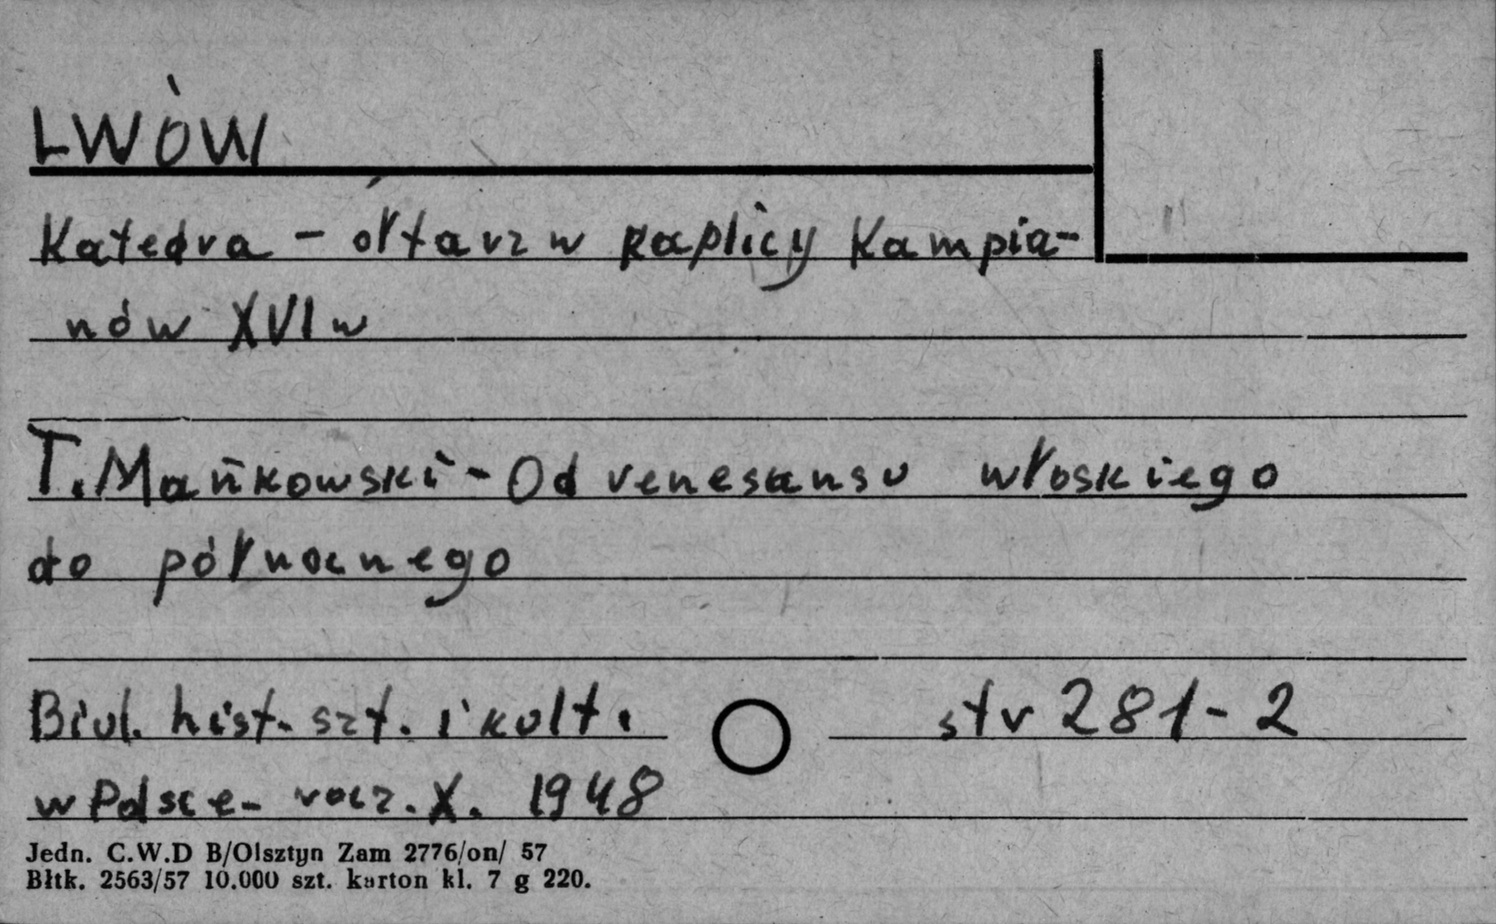 LWÓW
Katedra - ołtarz w kaplicy Kampia-
nów XVI w
T. Mańkowski - Od renesansu włoskiego
do północnego
Biul. hist. szt. i kult.
str 281-2
w Polsce - rocz. X. 1948
Jedn. C.W.D B/Olsztyn Zam 2776/on/ 57
Błtk. 2563/57 10.000 szt. karton kl. 7 g 220.